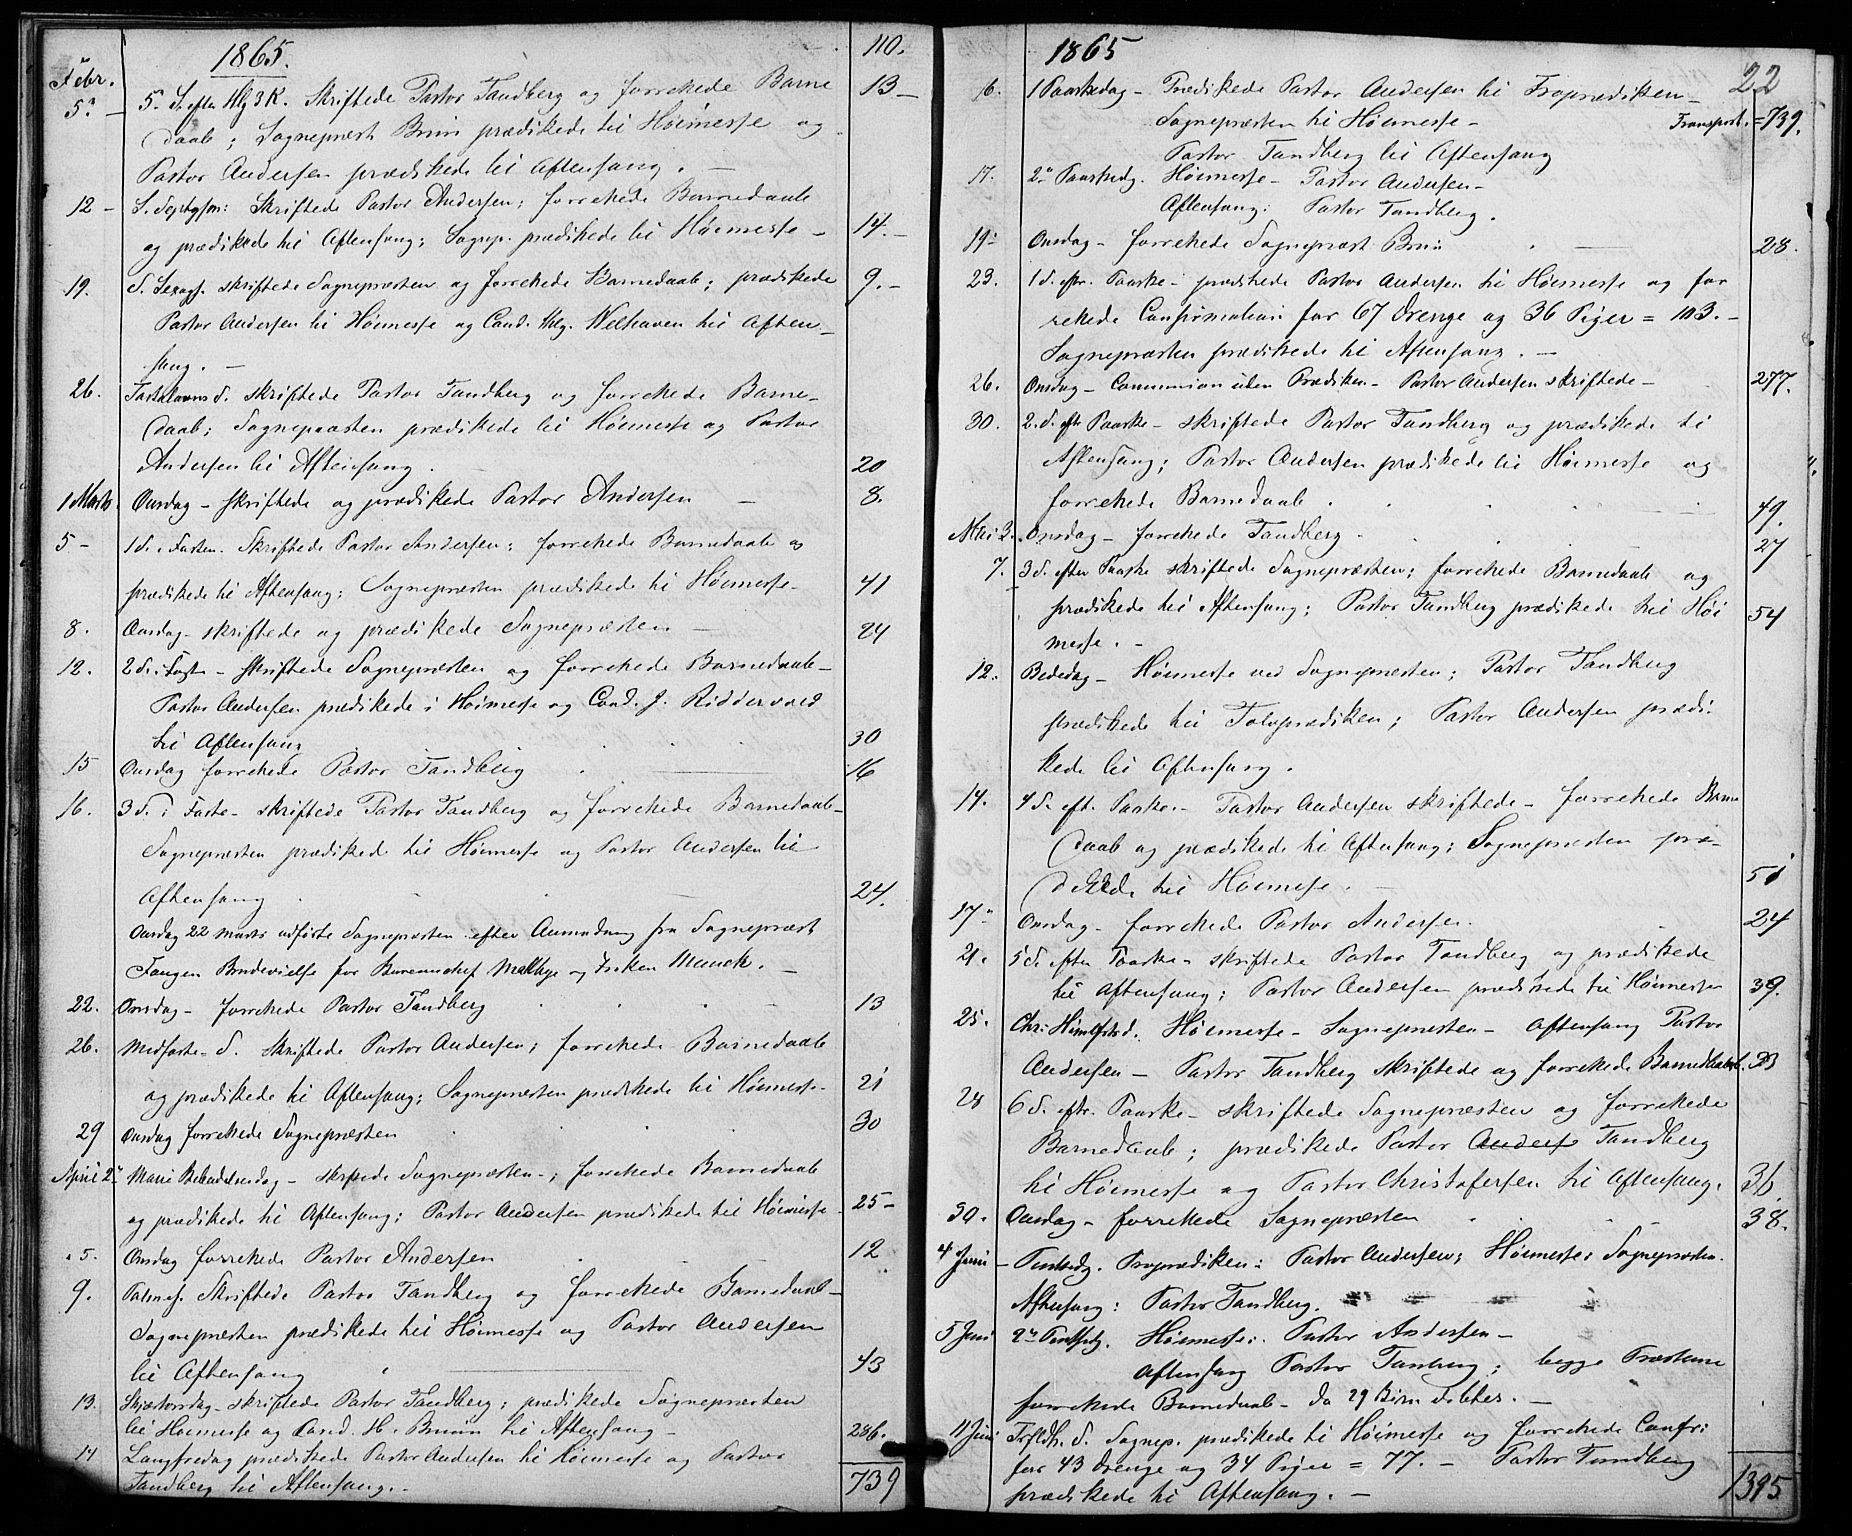 1865. 110.
Febr.
5. 5. S. efter Hlg 3 K. Skriftede Pastor Tandberg og forrettede Barne 13 –
daab; Sognepræst Bruun prædikede til Høimesse og
Pastor Andersen prædikede til Aftensang. –
12 – S. Septgsm: Skriftede Pastor Andersen; forrettede Barnedaab
og prædikede til Aftensang; Sognep. prædikede til Høimesse – 14. –
19. S. Sexags. skriftede Sognepræsten og forrettede Barnedaab; prædikede 9. –
Pastor Andersen til Høimesse og Cand. thlg. Welhaven til Aften-
sang. –
26. Fastelavns S. skriftede Pastor Tandberg og forrettede Barne-
daab; Sognepræsten prædikede til Høimesse og Pastor
Andersen til Aftensang. 20
1 Marts. Onsdag – skriftede og prædikede Pastor Andersen – 8.
5 – 1 S. i Fasten. Skriftede Pastor Andersen; forrettede Barnedaab og
prædikede til Aftensang; Sognepræsten prædikede til Høimesse. 41
8. Onsdag – skriftede og prædikede Sognepræsten – 24
12. 2 S. i Fast – skriftede Sognepræsten og forrettede Barnedaab –
Pastor Andersen prædikede i Høimesse og Cand. J. Riddervold
til Aftensang 30
15 Onsdag forrettede Pastor Tandberg 16
16. 3 S. i Faste – skriftede Pastor Tandberg og forrettede Barnedaab –
Sognepræsten prædikede til Høimesse og Pastor Andersen til
Aftensang 24.
Onsdag 22 marts udførte Sognepræsten efter Anmodning fra Sognepræst
Fangen Brudevielse for Bureauchef Malthye og Frøken Munch. –
22. Onsdag – forrettede Pastor Tandberg 13
26. Midfaste – S. skriftede Pastor Andersen; forrettede Barnedaab
og prædikede til Aftensang; Sognepræsten prædikede til Høimesse – 21
29 Onsdag forrettede Sognepræsten 30
April 2 Marie Bebudelsesdag – skriftede Sognepræsten –; forrettede Barnedaab
og prædikede til Aftensang; Pastor Andersen prædikede til Høimesse 25 –
5. Onsdag forrettede Pastor Andersen 12
9. Palmes. Skriftede Pastor Tandberg og forrettede Barnedaab –
Sognepræsten prædikede til Høimesse og Pastor Andersen
til Aftensang 43
13. Skjærtorsdag – skriftede Pastor Tandberg; prædikede Sognepræsten
til Høimesse og Cand. H. Bruun til Aftensang – 286.
14 Langfredag prædikede Pastor Andersen til Høimesse og Pastor
Tandberg til Aftensang. – 739
1865 22
16. 1 Paaskedag – Prædikede Pastor Andersen til Froprædiken –
Sognepræsten til Høimesse – Transport. = 739.
Pastor Tandberg til Aftensang
17. 2 Paaskedg. Høimesse – Pastor Andersen –
Aftensang: Pastor Tandberg.
19 Onsdag – forrettede Sognepræst Bruun 28.
23. 1 S. eftr. Paaske – prædikede Pastor Andersen til Høimesse og for
rettede Confirmation for 67 Drenge og 36 Piger = 103. –
Sognepræsten prædikede til Aftensang. –
26. Onsdag – Communion uden Prædiken – Pastor Andersen skriftede – 277.
30. 2. S. eftr Paaske – skriftede Pastor Tandberg og prædikede til
Aftensang; Pastor Andersen prædikede til Høimesse og
forrettede Barnedaab. 49.
Mai 3. Onsdag – forrettede Tandberg. 27
7. 3 S. efter Paaske skriftede Sognepræsten; forrettede Barnedaab og
prædikede til Aftensang; Pastor Tandberg prædikede til Høi 54
messe. –
12. Bededag – Høimesse ved Sognepræsten; Pastor Tandberg
prædikede til Tolvprædiken; Pastor Andersen prædi-
kede til Aftensang.
14. 4 S. eft. Paaske. – Pastor Andersen skriftede – forrettede Barne
daab og prædikede til Aftensang; Sognepræsten præ-
dikede til Høimesse. – 51
17 Onsdag – forrettede Pastor Andersen. 24
21. 5 S. efter Paaske – skriftede Pastor Tandberg og prædikede
til Aftensang; Pastor Andersen prædikede til Høimesse 39.
25. Chr. Himelfartsd. Høimesse – Sognepræsten – Aftensang Pastor
Andersen – Pastor Tandberg skriftede og forrettede Barnedaab.
28 6 S. eftr. Paaske – skriftede Sognepræsten og forrettede
Barnedaab; prædikede Pastor Anders Tandberg
til Høimesse og Pastor Christofersen til Aftensang. 36.
30. Onsdag – forrettede Sognepræsten 38.
4 Juni – Pintsedg. Froprædiken: Pastor Andersen; Høimesse: Sognepræsten.
Aftensang: Pastor Tandberg.
5 Juni 2 Pintsedg. Høimesse: Pastor Andersen –
Aftensang Pastor Tanberg; begge Præsterne
forrettede Barnedaab – da 29 Børn døbtes. –
11 Juni Trfldh. S. Sognep. prædikede til Høimesse og forrettede Confr:
for 43 Drenge og 34 Piger = 77. – Pastor Tandberg
prædikede til Aftensang. – 1395